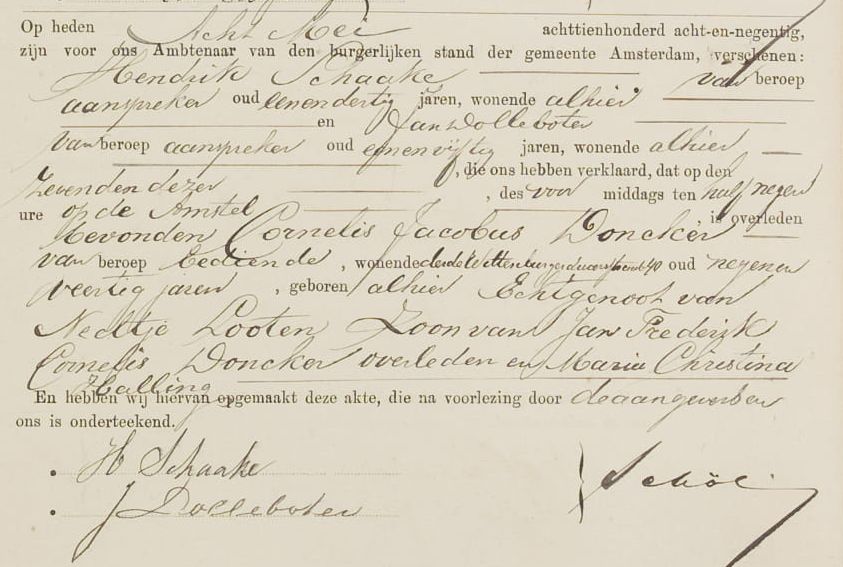 Op heden Acht Mei achttienhonderd acht-en-negentig,
zijn voor ons Ambtenaar van den burgerlijken stand der gemeente Amsterdam, verschenen:
Hendrik Schaake van beroep
aanspreker oud eenendertig jaren, wonende alhier
en Jan Dolleboter
van beroep aanspreker oud eenenvijftig jaren, wonende alhier
, die ons hebben verklaard, dat op den
zevenden dezer , des voor middags ten half negen
ure op de Amstel , is overleden
bevonden Cornelis Jacobus Doncker
van beroep bediende , wonende derde Wittenburgerdwarsstraat 40 oud negenen
veertig jaren , geboren alhier Echtgenoot van
Neeltje Looten Zoon van Jan Frederik
Cornelis Doncker overleden en Maria Christina
Halling
En hebben wij hiervan opgemaakt deze akte, die na voorlezing door de aangevers en
ons is onderteekend.
H Schaake
J Dolleboter